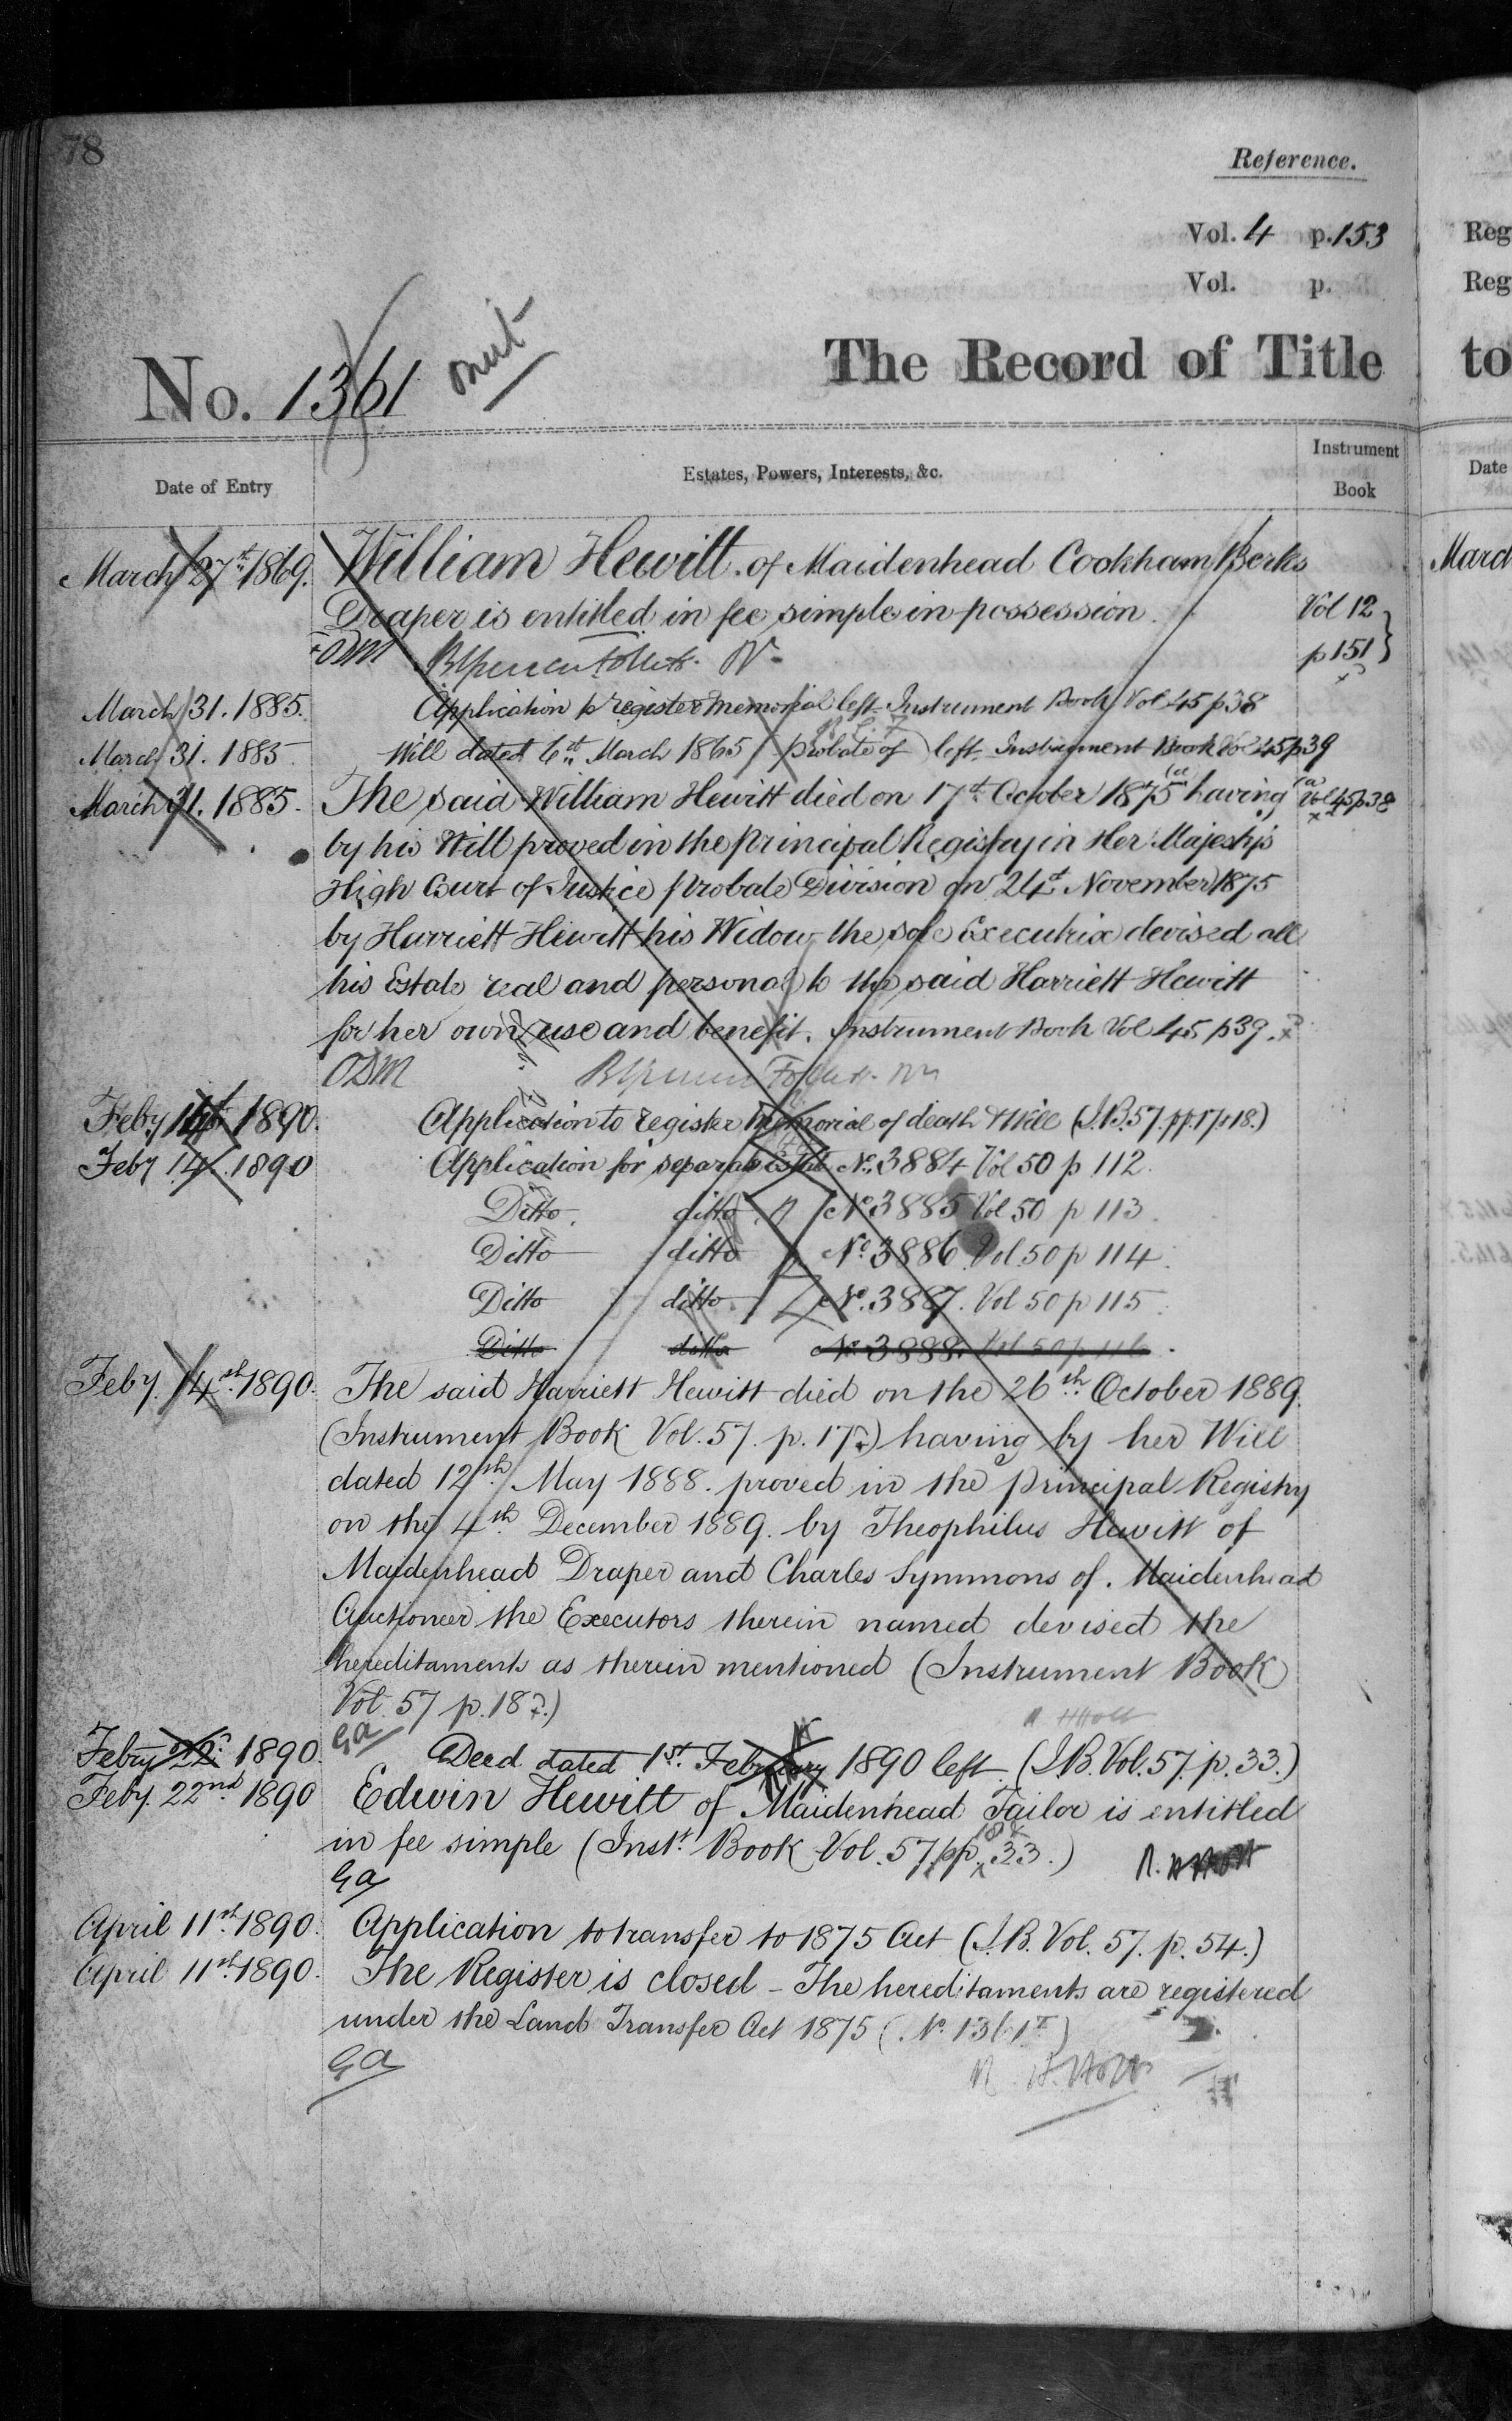 78
Reference.
Vol. 4 p. 153
Vol. p.
No. 1361 omit
The Record of Title
Date of Entry
Estates, Powers, Interests, &c.
Instrument Book
March 27th 1869. William Hewitt of Maidenhead Cookham Berks
Draper is entitled in fee simple in possession. Vol 12
ODM p 151
March 31. 1885. Application to register memorial left Instrument Book Vol 45 p 38
March 31. 1885 Will dated 6th March 1865 (probate of) left Instrument Book Vol 45 p 39
March 31. 1885. The said William Hewitt died on 17th October 1875 (a) having (a) Vol 45 p 38
by his Will proved in the Principal Registry in Her Majesty's
High Court of Justice Probate Division on 24th November 1875
by Harriett Hewitt his Widow the sole Executrix devised all
his Estate real and personal to the said Harriett Hewitt
for her own use and benefit. Instrument Book Vol 45 p 39.
ODM
Feby 14th 1890. Application to register memorial of death & Will (I.B. 57. pp. 17 & 18.)
Feby 14. 1890 Application for separate No. 3884 Vol 50 p 112.
Ditto ditto No. 3885 Vol 50 p 113.
Ditto ditto No. 3886 Vol. 50 p 114.
Ditto ditto No. 3887. Vol 50 p 115.
Ditto ditto No. 3888. Vol 50 p 116.
Feby. 14th 1890. The said Harriett Hewitt died on the 26th October 1889.
(Instrument Book Vol. 57. p. 17) having by her Will
dated 12th May 1888. proved in the Principal Registry
on the 4th December 1889. by Theophilus Hewitt of
Maidenhead Draper and Charles Symmons of Maidenhead
Auctioneer the Executors therein named devised the
hereditaments as therein mentioned (Instrument Book
Vol. 57 p. 18.)
GA
Febry 22 1890. Deed dated 1st February 1890 left (I.B. Vol. 57. p. 33.)
Feby. 22nd 1890 Edwin Hewitt of Maidenhead Tailor is entitled
in fee simple (Inst. Book Vol. 57 pp. 18 & 33.)
GA
April 11th 1890. Application to transfer to 1875 Act (I.B. Vol. 57. p. 54.)
April 11th 1890. The Register is closed – The hereditaments are registered
under the Land Transfer Act 1875 (No. 1361 T)
GA R. H. Holt
Reg
Reg
to
Date
March